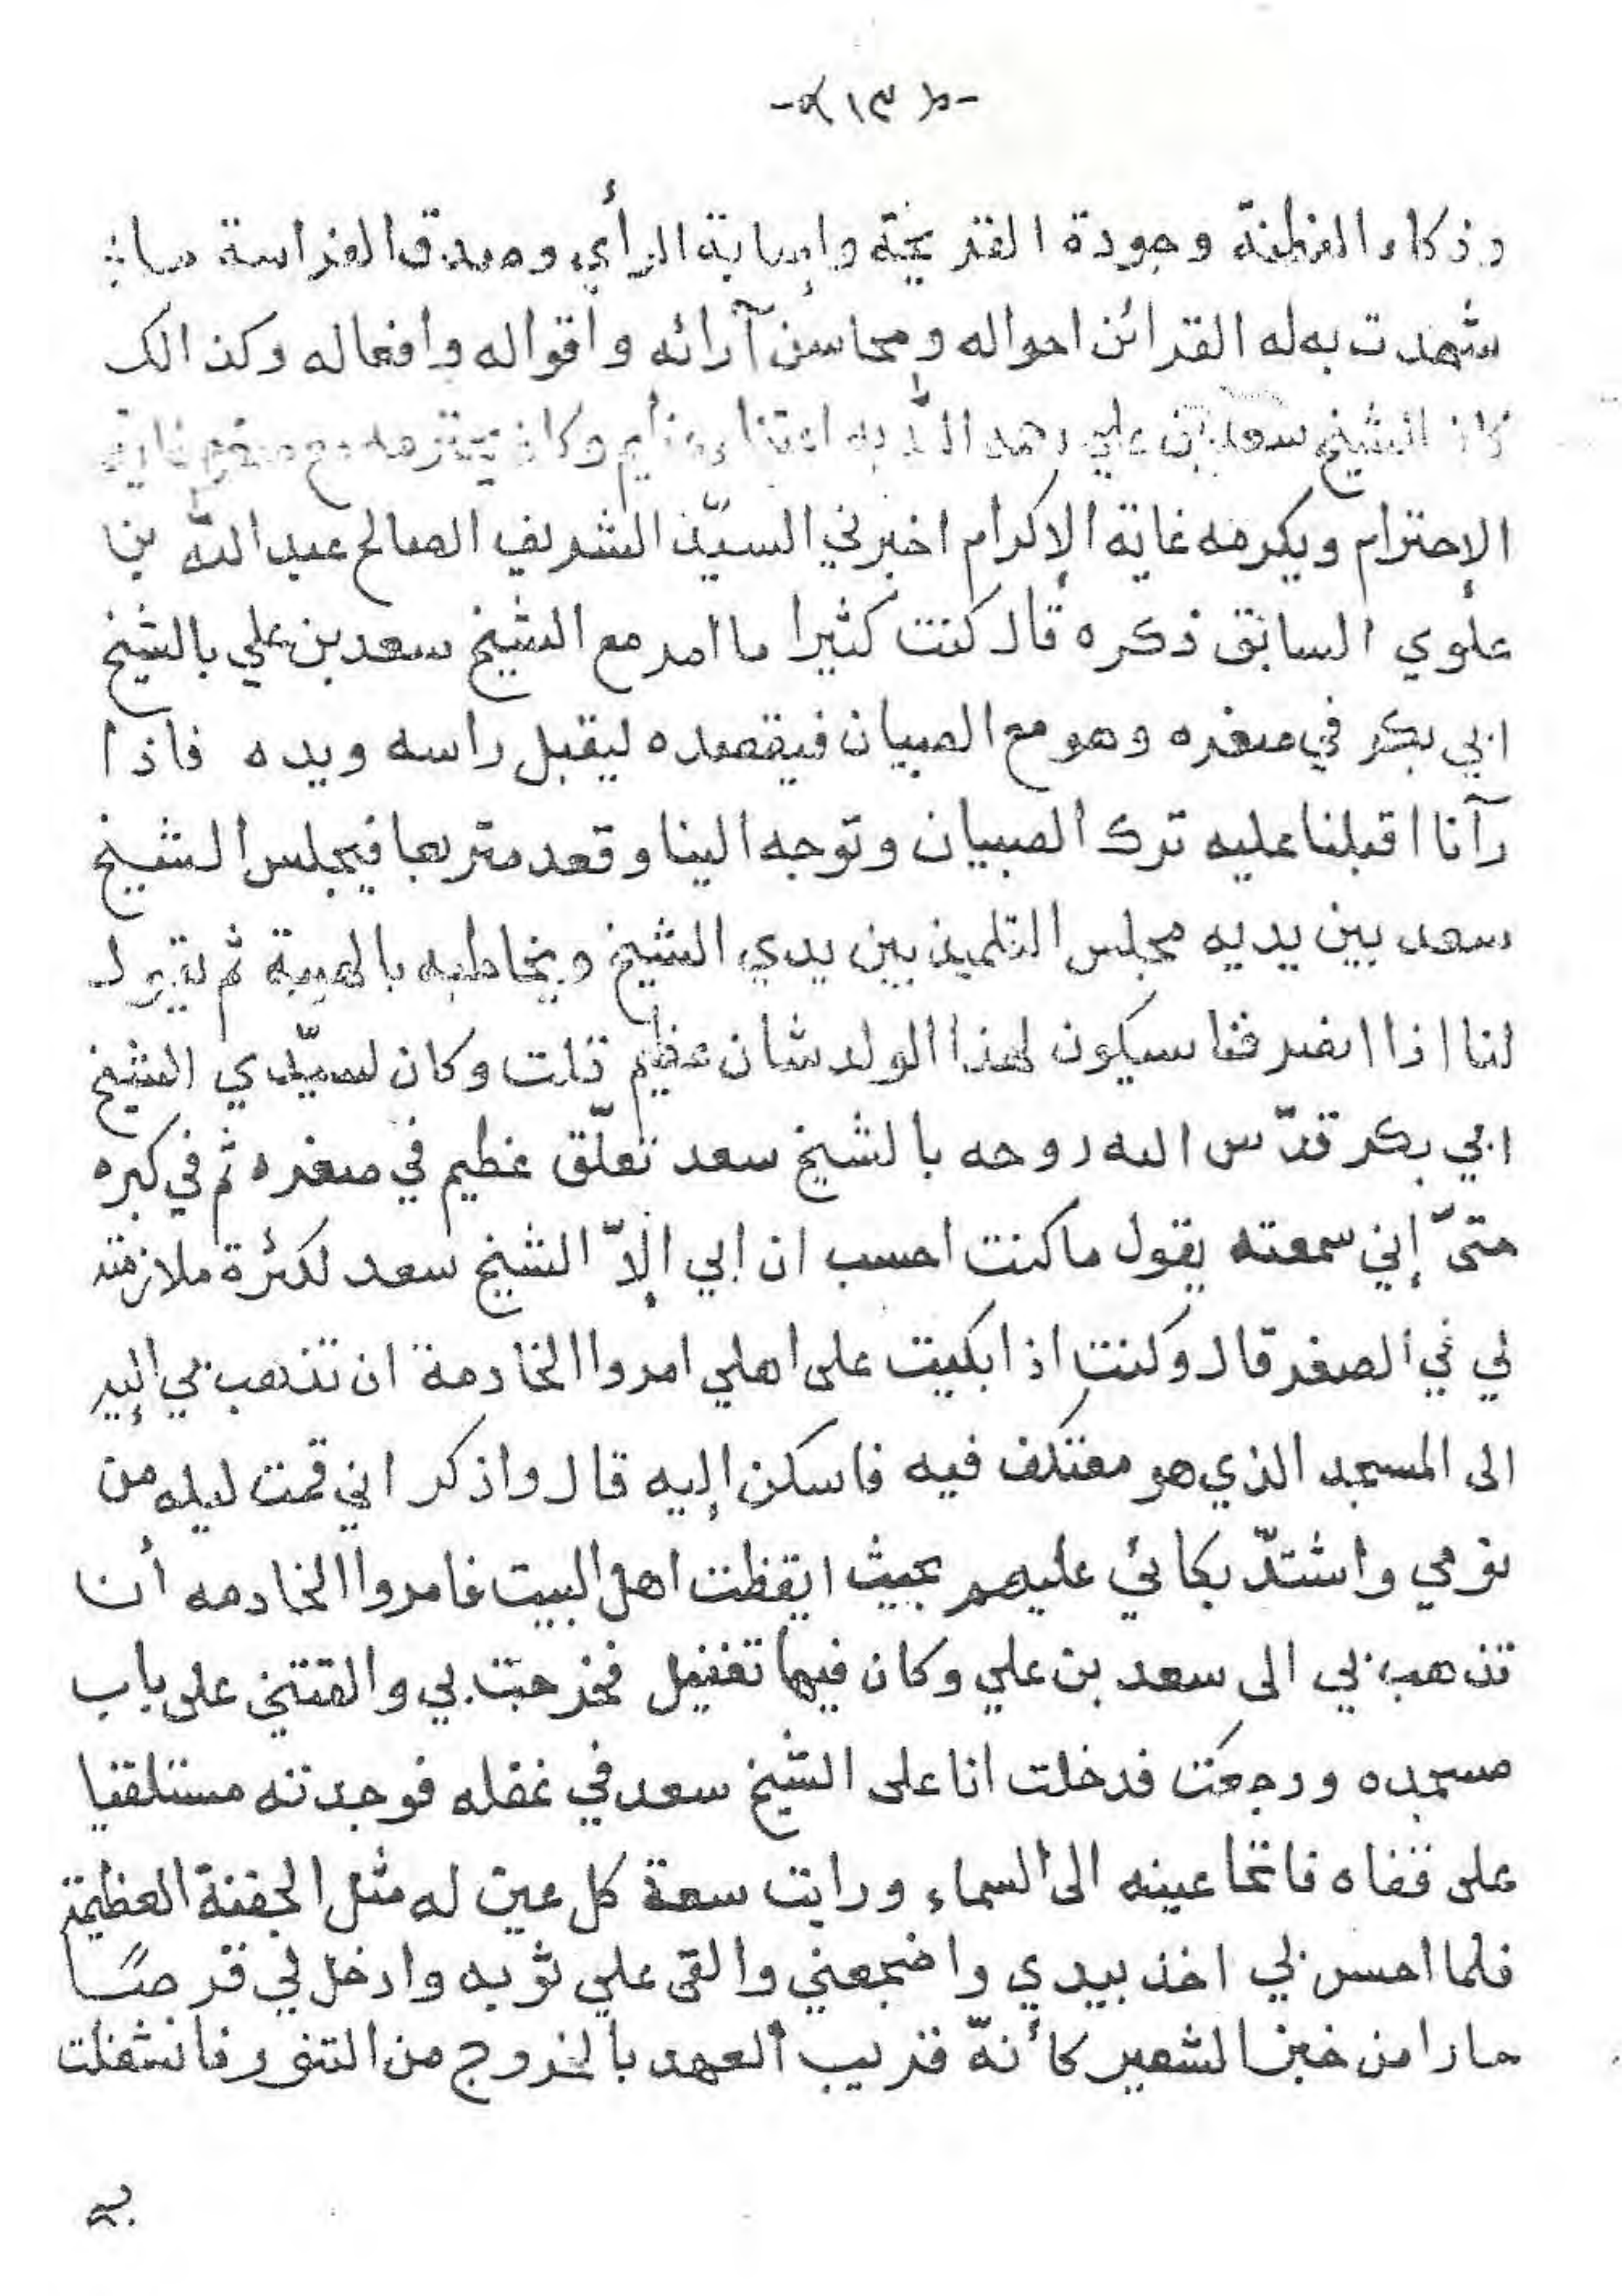 -﴿ ١٣ ﴾-
وذكاء الفطنة وجودة القريحة وإصابة الرأي وصدق الفراسة ما
شهدت به له القرائن احواله ومحاسن آرائه وأقواله وأفعاله وكذالك
كان الشيخ سعد بن علي رحمه اللّه به اعتناء وكان يحترمه مع صغره غاية
الإحترام ويكرمه غاية الإكرام اخبرني السيّد الشريف الصالح عبد اللّه بن
علوي السابق ذكره قال كنت كثيرا ما امر مع الشيخ سعد بن علي بالشيخ
ابي بكر في صغره وهو مع الصبيان فيقصده ليقبل راسه ويده فاذا
رآنا اقبلنا عليه ترك الصبيان وتوجه الينا وقعد متربعا فيجلس الشيخ
سعد بين يديه مجلس التلميذ بين يدي الشيخ ويخاطبه بالهيبة ثم يقول
لنا اذا انصرفنا سيكون لهذا الولد شان عظيم قلت وكان لسيّدي الشيخ
ابي بكر قدّس الله روحه بالشيخ سعد تعلّق عظيم في صغره ثم في كبره
حتىّ إني سمعته يقول ما كنت احسب ان ابي إلاّ الشيخ سعد لكثرة ملازمته
لي في الصغر قال وكنت اذا بكيت على اهلي امروا الخادمة ان تذهب بي إليه
الى المسجد الذي هو معتكف فيه فاسكن إليه قال واذكر اني قمت ليله من
نومي واشتدّ بكائي عليهم بحيث ايقظت اهل البيت فامروا الخادمه أن
تذهب بي الى سعد بن علي وكان فيها تغفيل فخرجت بي والقتني على باب
مسجده ورجعت فدخلت انا على الشيخ سعد في غفله فوجدته مستلقيا
على قفاه فاتحا عينه الى السماء ورايت سعة كل عين له مثل الجفنة العظيمة
فلما احس بي اخذ بيدي واضجعني والقى علي ثوبه وادخل لي قرصًا
حارا من خبز الشعير كأنهّ قريب العهد بالخروج من التنور فانشغلت
به